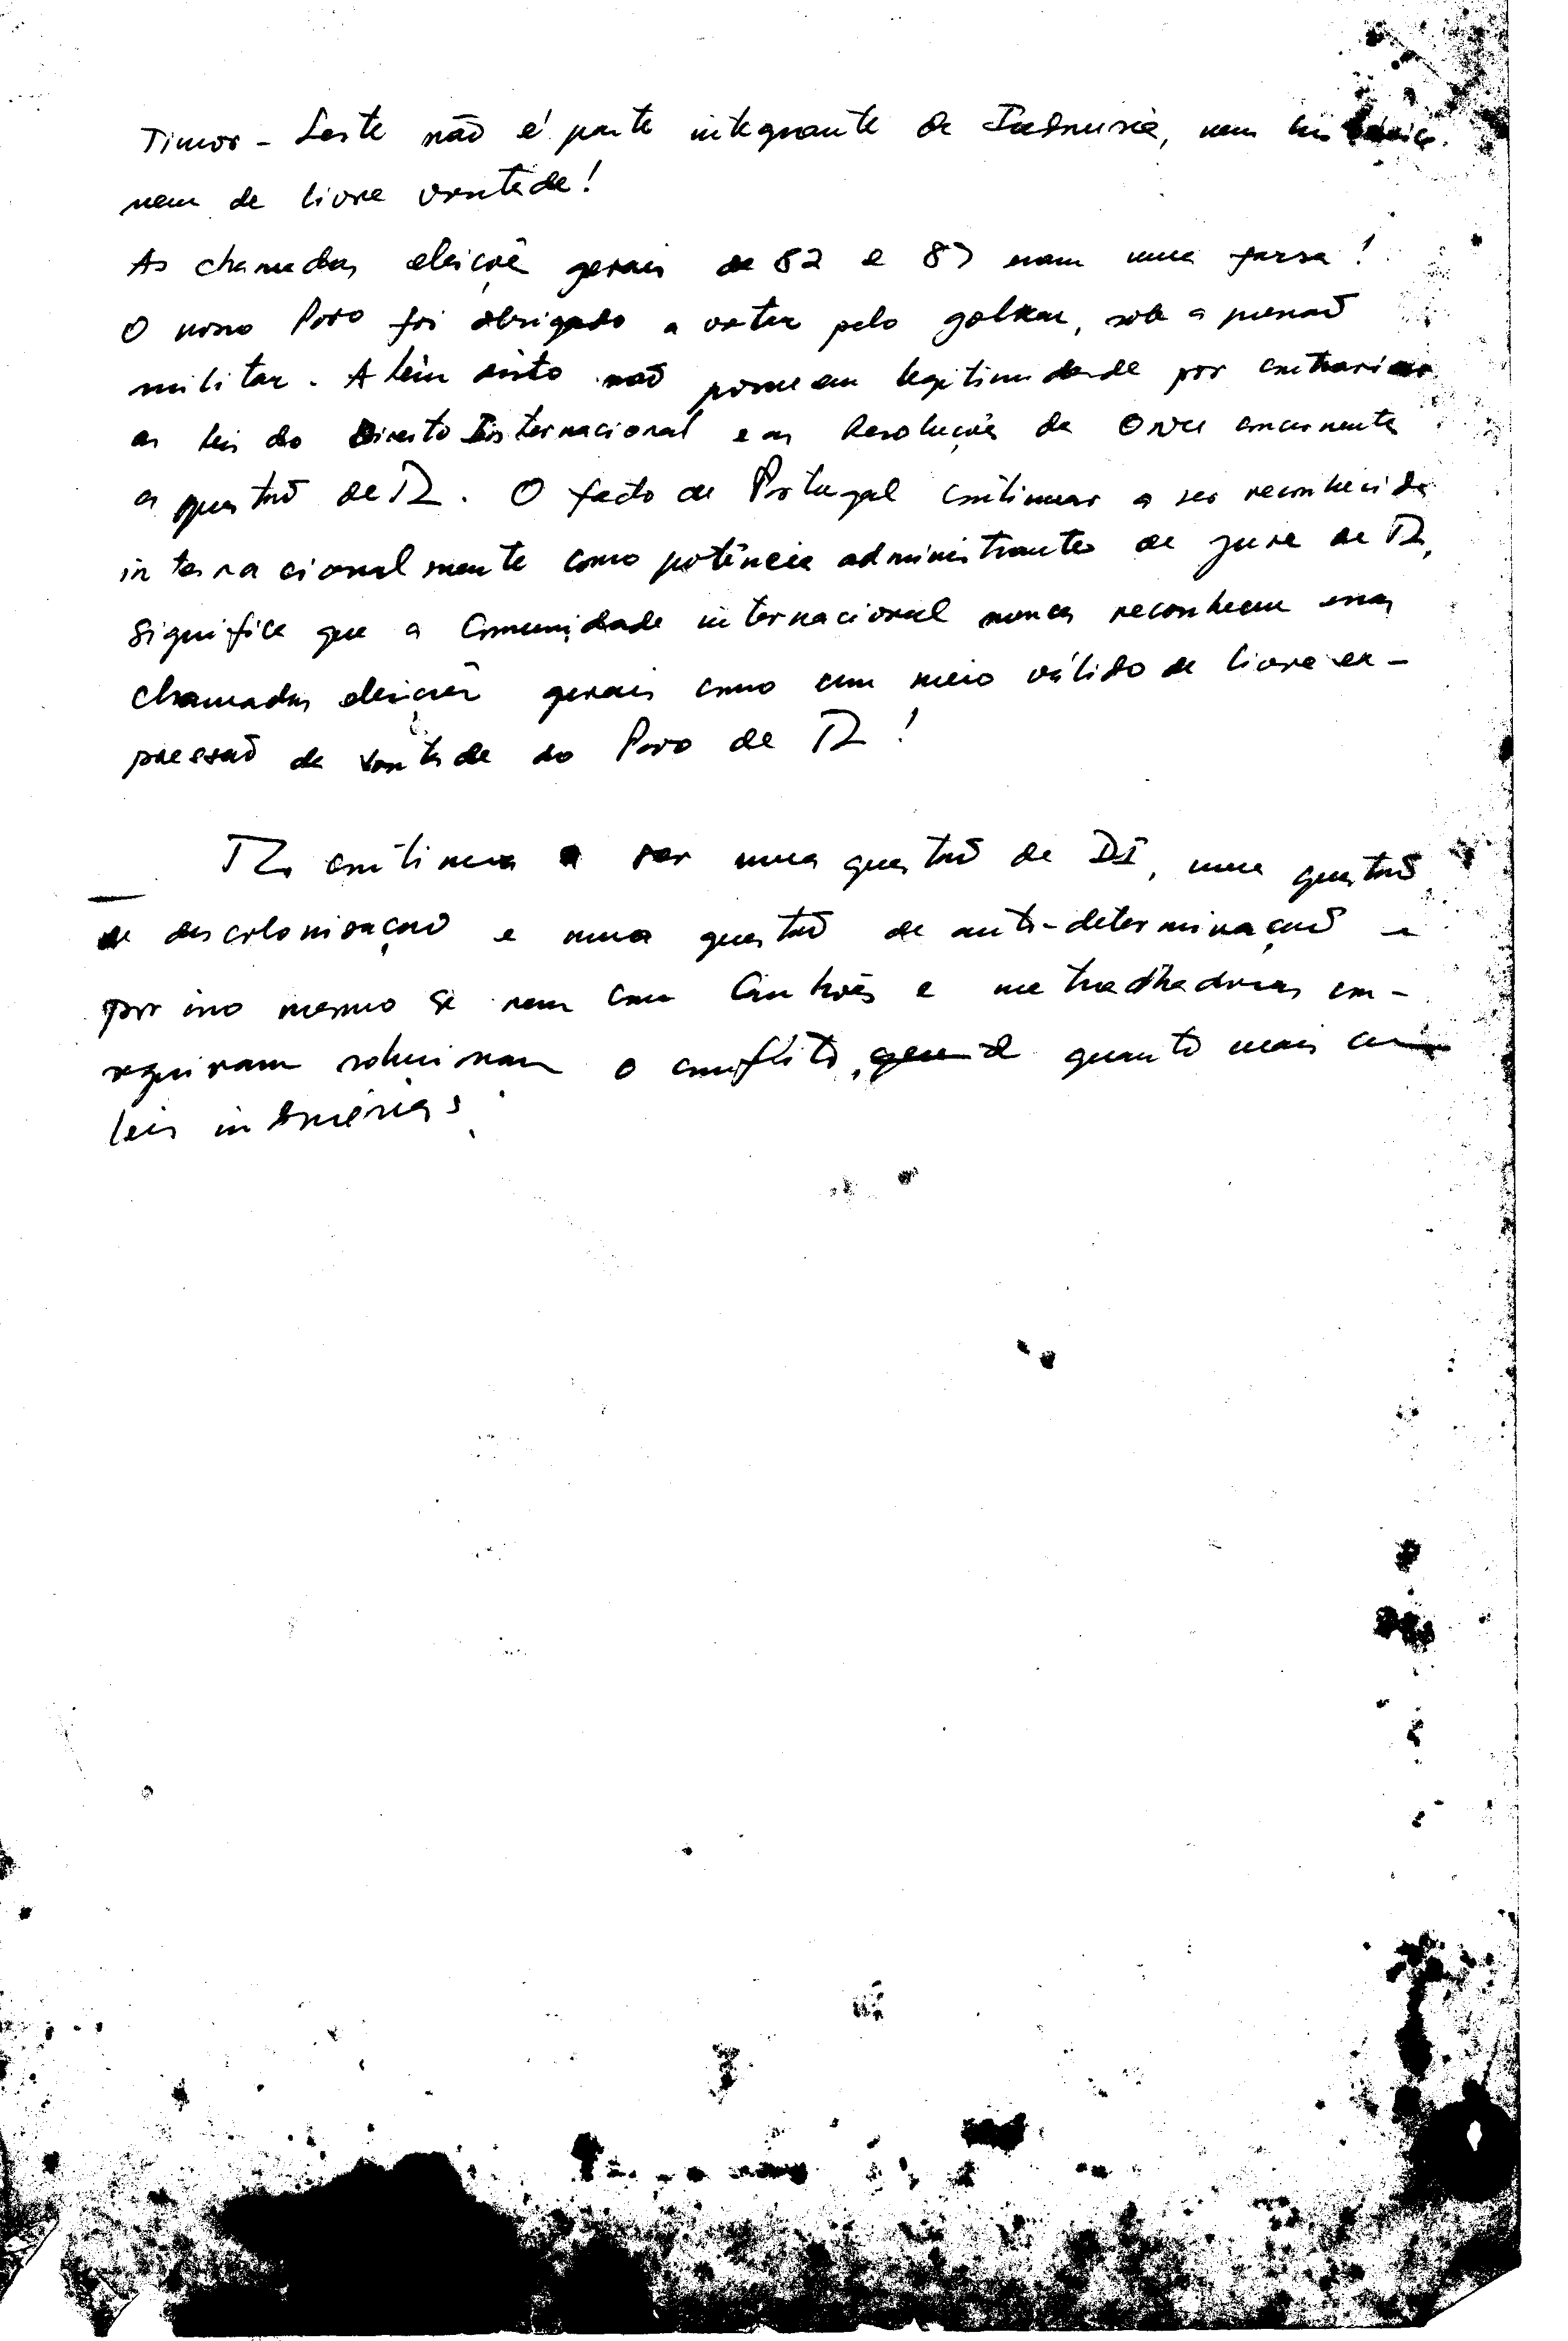 Timor-Leste não é parte integrante da Indonésia, nem histórica
nem de livre vontade!
As chamadas eleições gerais de 82 e 87 eram uma farsa!
O nosso Povo foi obrigado a votar pelo golkar, sob a pressão
militar. Além disto não possuem legitimidade por contrariar
as leis do Direito Internacional e as Resoluções da ONU concernentes
à questão de TL. O facto de Portugal continuar a ser reconhecida
internacionalmente como potência administrante de jure de TL,
significa que a Comunidade internacional nunca reconheceu essas
chamadas eleições gerais como um meio válido de livre ex-
pressão da vontade do Povo de TL!
TL continua a ser uma questão de DI, uma questão
de descolonização e uma questão de auto-determinação e
por isso mesmo se nem com Canhões e metralhadoras con-
seguiram solucionar o conflito, quanto mais com
leis indonésias!